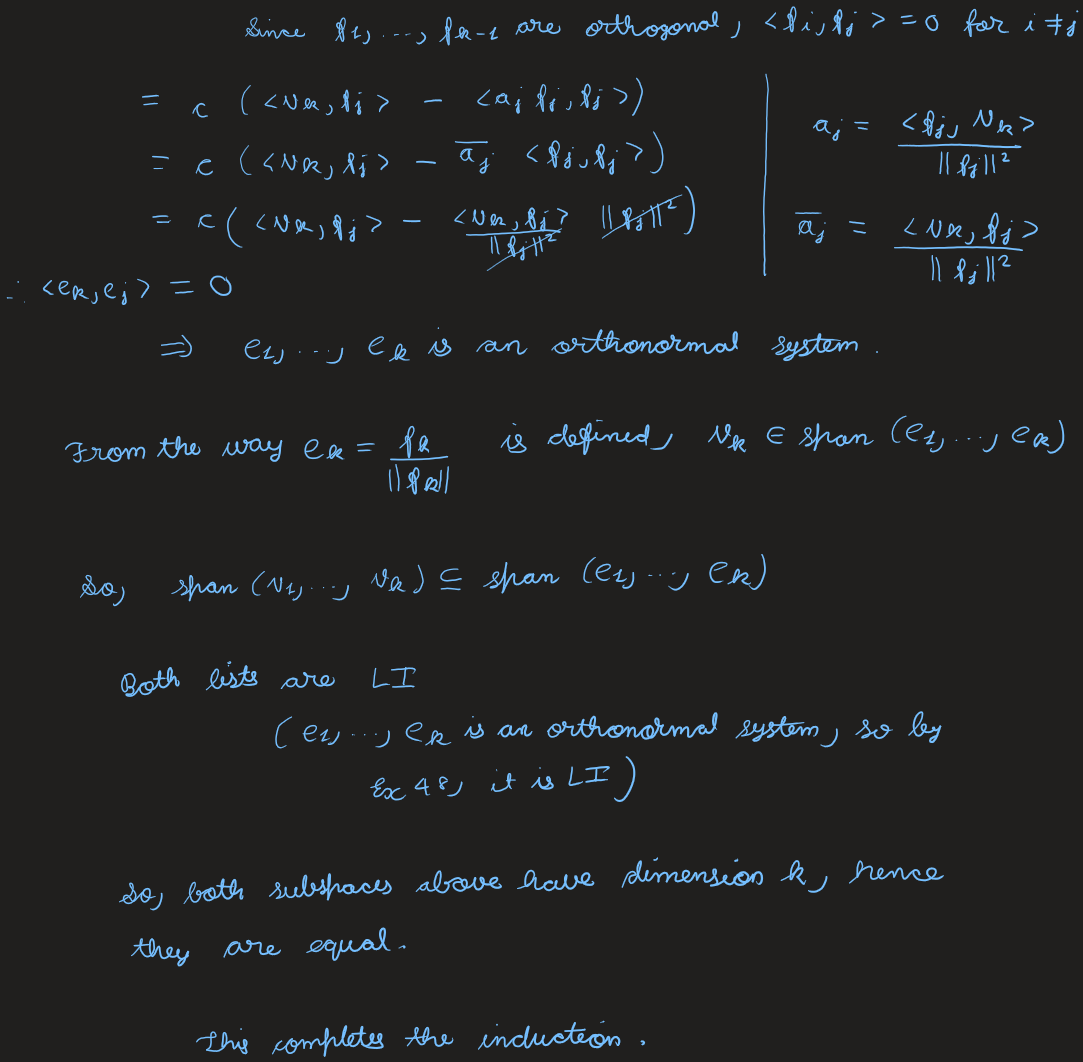 Since f₁, ..., fₖ₋₁ are orthogonal, <fᵢ, fⱼ> = 0 for i ≠ j
= c ( <vₖ, fⱼ> - <aⱼ fⱼ, fⱼ> )
= c ( <vₖ, fⱼ> - \overline{aⱼ} <fⱼ, fⱼ> )
= c ( <vₖ, fⱼ> - <vₖ, fⱼ> / ||fⱼ||² ||fⱼ||² )
aⱼ = <fⱼ, vₖ> / ||fⱼ||²
\overline{aⱼ} = <vₖ, fⱼ> / ||fⱼ||²
∴ <eₖ, eⱼ> = 0
⇒ e₁, ..., eₖ is an orthonormal system.
From the way eₖ = fₖ / ||fₖ|| is defined, vₖ ∈ span (e₁, ..., eₖ)
So, span (v₁, ..., vₖ) ⊆ span (e₁, ..., eₖ)
Both lists are LI
(e₁, ..., eₖ is an orthonormal system, so by
Ex 48, it is LI)
So, both subspaces above have dimension k, hence
they are equal.
This completes the induction.